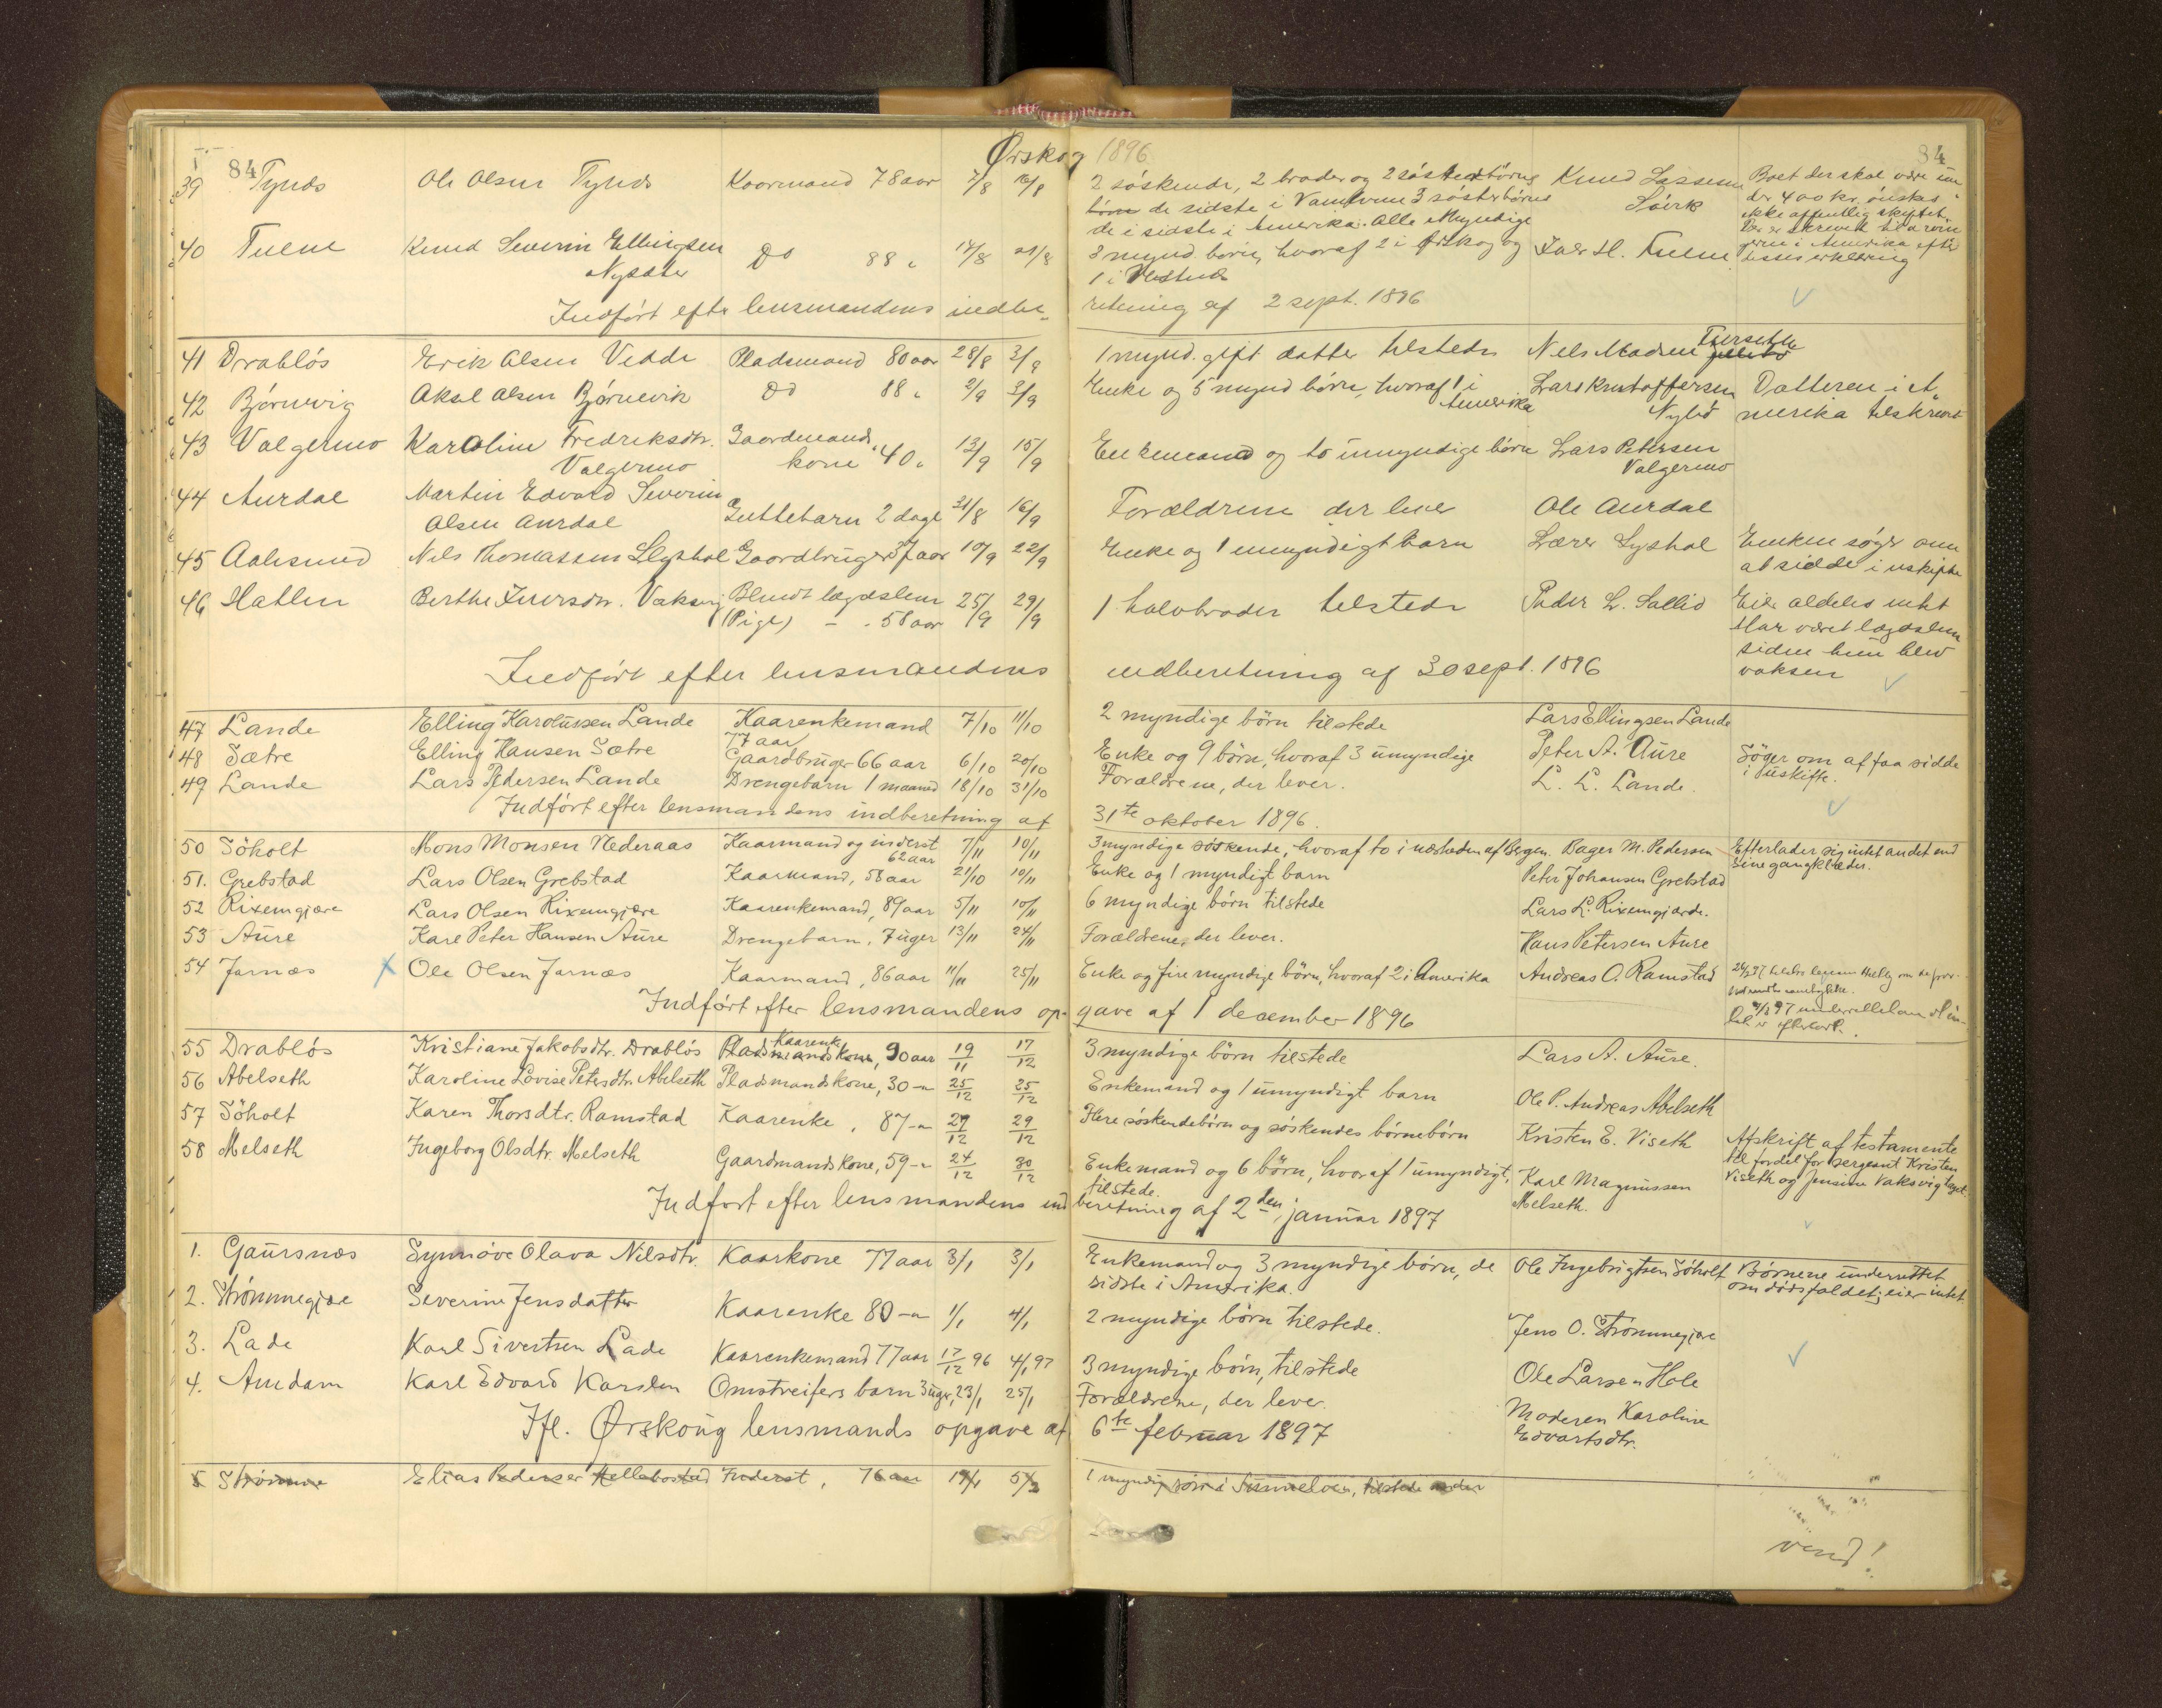 Ørskog 1896
84
84
39 Tynds Ole Olsen Tynds Kaarmand 78 aar 7/8 16/8 2 söskende, 2 broder og 2 søsterbørns Knud Lassesen Boet der skal være un
børn de sidste i 3 søsterbørns der 400 kr. ønskes
de i sidste i Amerika. Alle Myndige ikke offentlig skiftet.
40 Knud Severin Ellingsen Do 88 " 14/8 21/8 3 mynd. børn, hvoraf 2 i Ørskog og
Nysæter 1 i
Indført efter lensmandens indbe- retning af 2 sept. 1896
41 Drabløs Erik Olsen Vedde Pladsmand 80 aar 28/8 3/9 1 mynd. gift datter tilstede Nels Madsen
42 Bjørnevig Aksel Olsen Bjørnevik Do 88 " 2/9 3/9 Enke og 5 mynd børn, hvoraf 1 i Lars Kristoffersen Datteren i A-
Amerika Nylid merika tilskrevet
43 Valgermo Karoline Fredriksdtr. Gaardmands 13/9 15/9 Enkemand og to umyndige børn Lars Petersen
Valgermo kone 40 " Valgermo
44 Aurdal Martin Edvard Severin
Olsen Aurdal Guttebarn 2 dage 21/8 16/9 Forældrene der lever Ole Aurdal
45 Nils Thomassen Lyshol Gaardbruger 57 aar 10/9 22/9 Enke og 1 umyndigt barn Lærer Lyshol Enken søger om
at sidde i uskifte
46 Hatlen Berthe Iversdtr. Vaksvig Blindt lægdslem 25/9 29/9 1 halvbroder tilstede Peder L. Sollid Eier aldeles intet
(Pige) - . 58 aar Har været lægdslem
siden hun blev
Indført efter lensmandens indberetning af 30 sept. 1896 voksen
47 Lande Elling Karolussen Lande Kaarenkemand 7/10 11/10 2 myndige börn tilstede Lars Ellingsen Lande
77 aar
48 Sætre Elling Hansen Sætre Gaardbruger 66 aar 6/10 20/10 Enke og 9 börn, hvoraf 3 umyndige Peter A. Aure Söger om at faa sidde
49 Lande Lars Pedersen Lande Drengebarn 1 maaned 18/10 31/10 Forældrene, der lever. L. L. Lande. i uskifte.
Indført efter lensmandens indberetning af 31te oktober 1896.
50 Söholt Mons Monsen Nederaas Kaarmand og inderst 7/11 10/11 3 myndige söskende, hvoraf to i nærheden af Bergen. Bager M. Pedersen Efterlader sig intet andet end
62 aar sine gangklæder.
51. Grebstad Lars Olsen Grebstad Kaarmand, 58 aar 21/10 10/11 Enke og 1 myndigt barn Peter Johansen Grebstad
52 Rixemgjære Lars Olsen Rixemgjære Kaarenkemand, 89 aar 5/11 10/11 6 myndige börn tilstede Lars L. Rixemgjærde.
53 Aure Karl Peter Hansen Aure Drengebarn, 7 uger 13/11 24/11 Forældrene, der lever. Hans Petersen Aure
54 Jarnæs Ole Olsen Jarnæs Kaarmand, 86 aar 11/11 25/11 Enke og fire myndige börn, hvoraf 2 i Amerika Andreas O. Ramstad
Indført efter lensmandens op- gave af 1 december 1896
55 Drabløs Kristiane Jakobsdtr. Drabløs Kaarenk. Pladsmandskone, 90 aar 19/11 17/12 3 myndige börn tilstede Lars A. Aure.
56 Abelseth Karoline Lovise Petersdtr. Abelseth Pladsmandskone, 30 -" 25/12 25/12 Enkemand og 1 umyndigt barn Ole P. Andreas Abelseth
57 Söholt Karen Thorsdtr. Ramstad Kaarenke, 87 -" 29/12 29/12 Flere söskendebörn og söskendes börnebörn Kristen E. Viseth Afskrift af testamente
58 Melseth Ingeborg Olsdtr. Melseth Gaardmandskone, 59 -" 24/12 30/12 Enkemand og 6 börn, hvoraf 1 umyndigt, Karl Magnussen til fordel for sergeant Kristen
tilstede. Melseth. Viseth og Jensine Vaksvig taget.
Indført efter lensmandens ind beretning af 2den januar 1897
1. Gaursnæs Synnöve Olava Nilsdtr. Kaarkone 77 aar 3/1 3/1 Enkemand og 3 myndige börn, de Ole Ingebrigtsen Söholt Børnene underrettet
sidste i Amerika. om dödsfaldet; eier intet.
2. Strömmegjære Severine Jensdatter Kaarenke 80 -" 1/1 4/1 2 myndige börn tilstede. Jens O. Strömmegjære
3. Lade Karl Sivertsen Lade Kaarenkemand 77 aar 17/12 96 4/1 97 3 myndige börn, tilstede Ole Larsen Hole
4. Amdam Karl Edvard Karslen Omstreifers barn 3 uger, 23/1 25/1 Forældrene, der lever. Moderen Karoline
Edvartsdtr.
Ifl. Ørskoug lensmands opgave af 6te februar 1897
5 Strømme Elias Pedersen Hellebostad Inderst, 76 aar 19/1 5/2 1 myndig sön i Sunnelven, tilstede
vend!